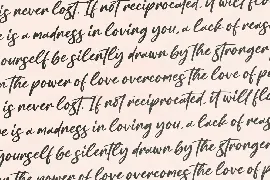 is never lost. If not reciprocated, it will flo
e is a madness in loving you, a lack of reas
ourself be silently drawn by the stronger
n the power of love overcomes the love of p
is never lost. If not reciprocated, it will flo
e is a madness in loving you, a lack of reas
yourself be silently drawn by the stronger
the power of love overcomes the love of p